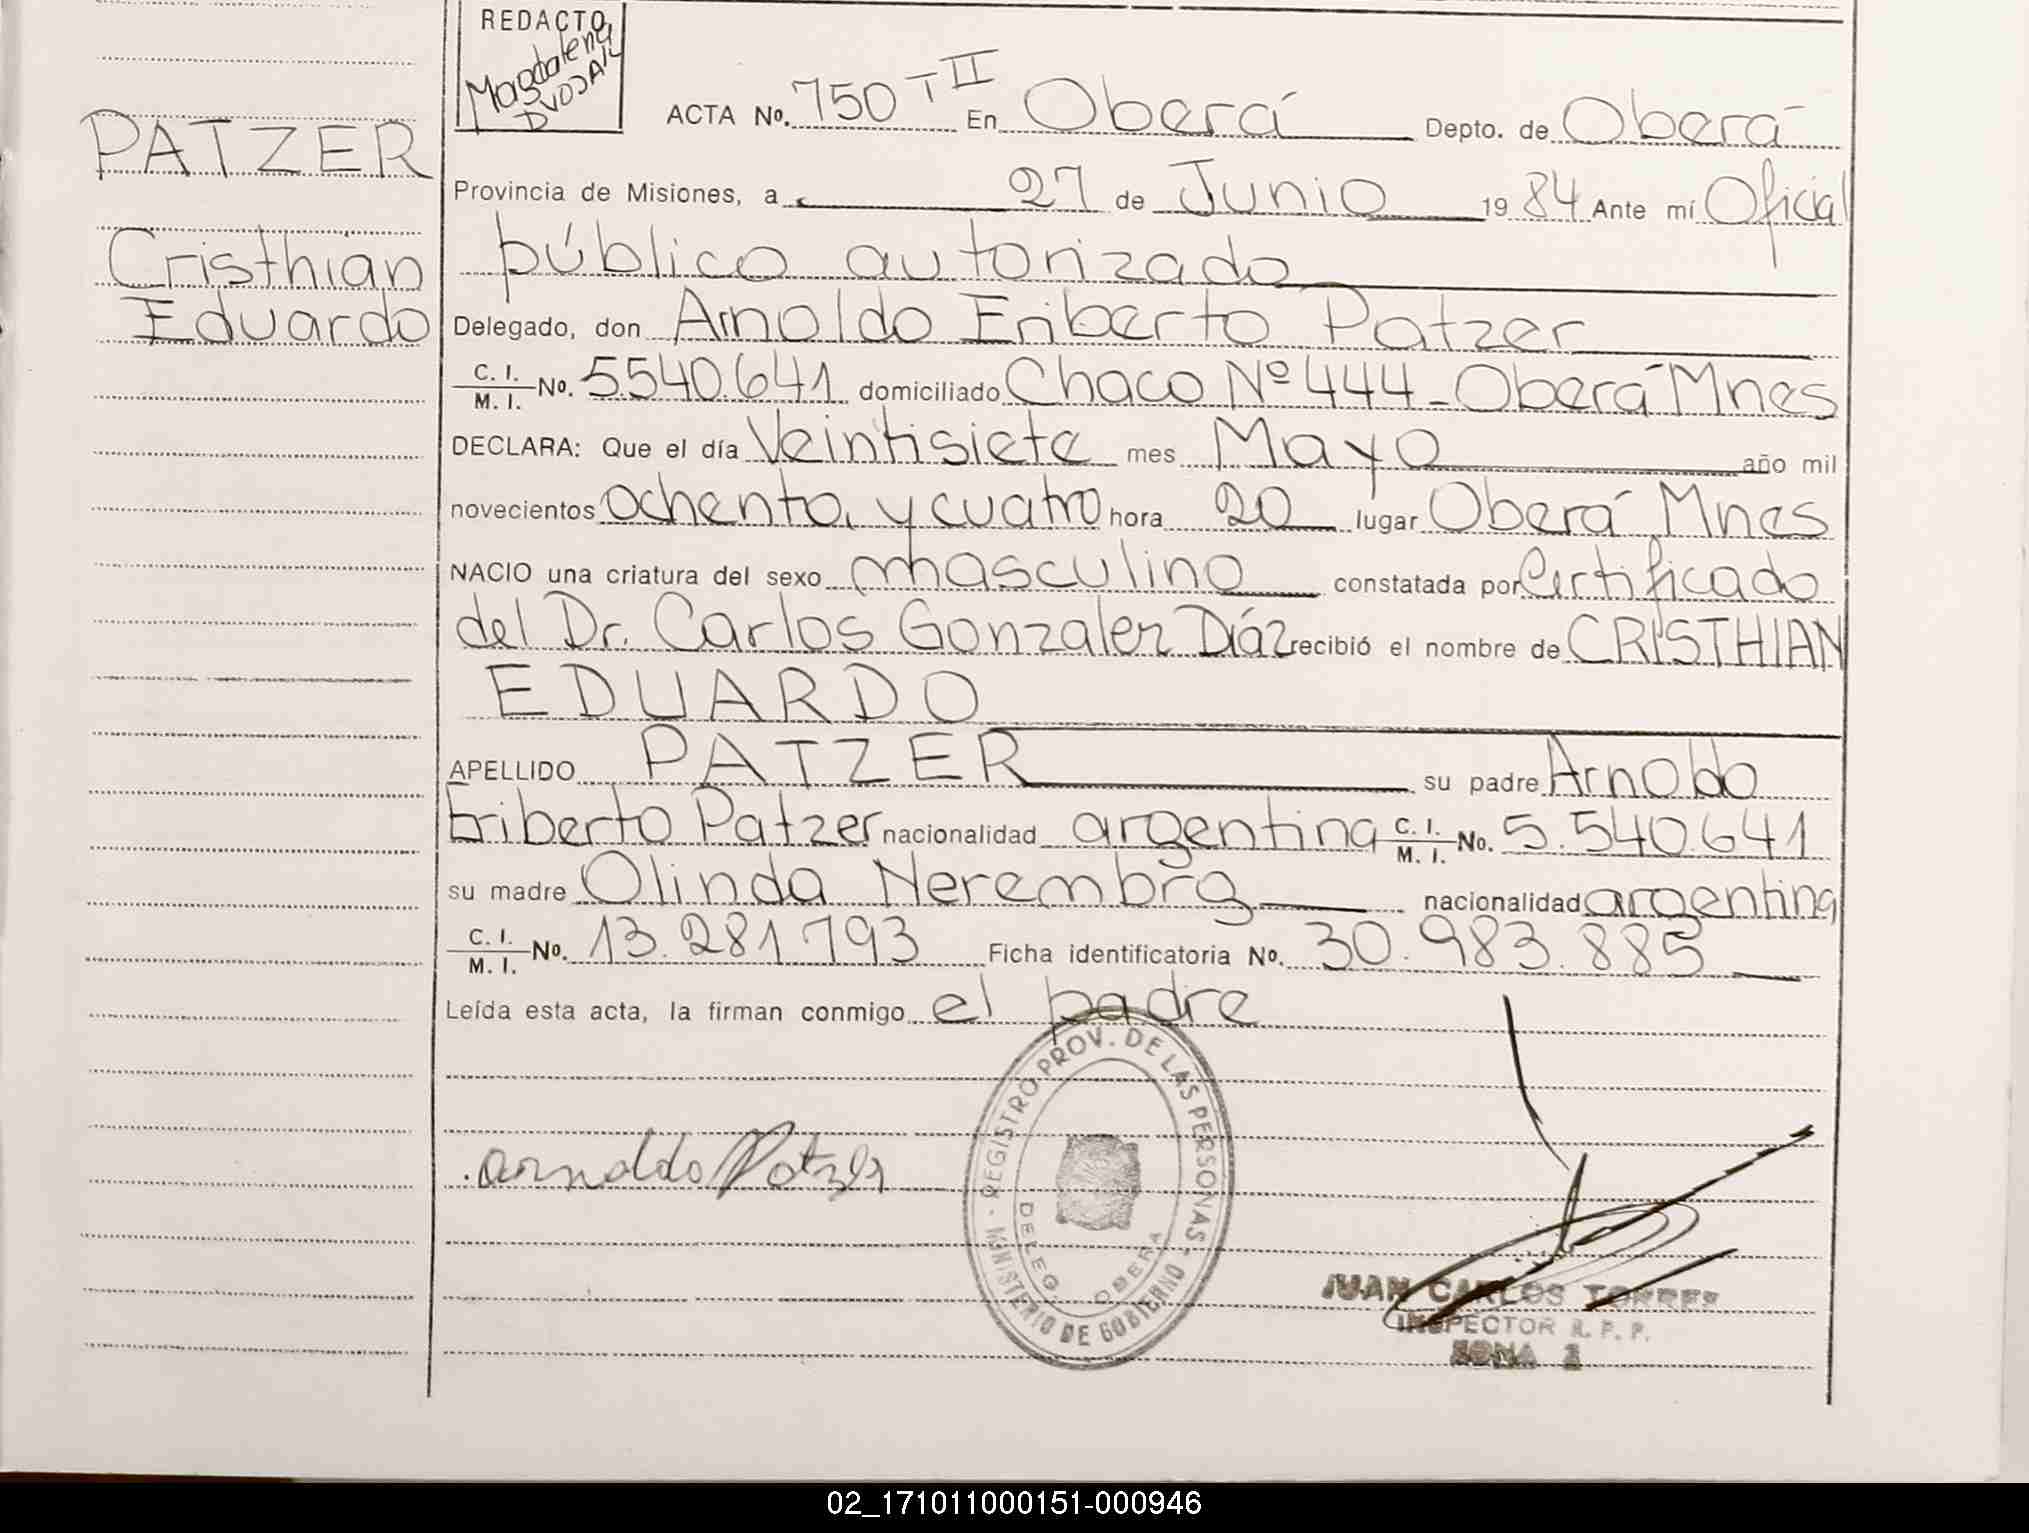 REDACTO
Magdalena
ACTA No. 750 T II En Oberá Depto. de Oberá
PATZER
Provincia de Misiones, a 27 de Junio 1984 Ante mí Oficial
Cristhian
público autorizado
Eduardo
Delegado, don Arnoldo Eriberto Patzer
C. I.
M. I. No. 5.540.641 domiciliado Chaco Nº 444 - Oberá Mnes
DECLARA: Que el día Veintisiete mes Mayo año mil
novecientos ochenta y cuatro hora 20 lugar Oberá Mnes
NACIO una criatura del sexo masculino constatada por Certificado
del Dr. Carlos Gonzalez Díaz recibió el nombre de CRISTHIAN
EDUARDO
APELLIDO PATZER su padre Arnoldo
Eriberto Patzer nacionalidad argentina C. I. M. I. No. 5.540.641
su madre Olinda Nerembrg nacionalidad argentina
C. I.
M. I. No. 13.281.793 Ficha identificatoria No. 30.983.885
Leída esta acta, la firman conmigo el padre
REGISTRO PROV. DE LAS PERSONAS - MINISTERIO DE GOBIERNO -
DELEG. OBERA
Arnoldo Patzer
JUAN CARLOS TORRES
INSPECTOR R. P. P.
ZONA 2
02_171011000151-000946